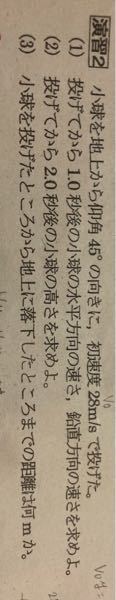 演習2 小球を地上から仰角45°の向きに，初速度28m/sで投げた。
V₀
(1) 投げてから1.0秒後の小球の水平方向の速さ，鉛直方向の速さを求めよ。
(2) 投げてから2.0秒後の小球の高さを求めよ。
(3) 小球を投げたところから地上に落下したところまでの距離は何mか。